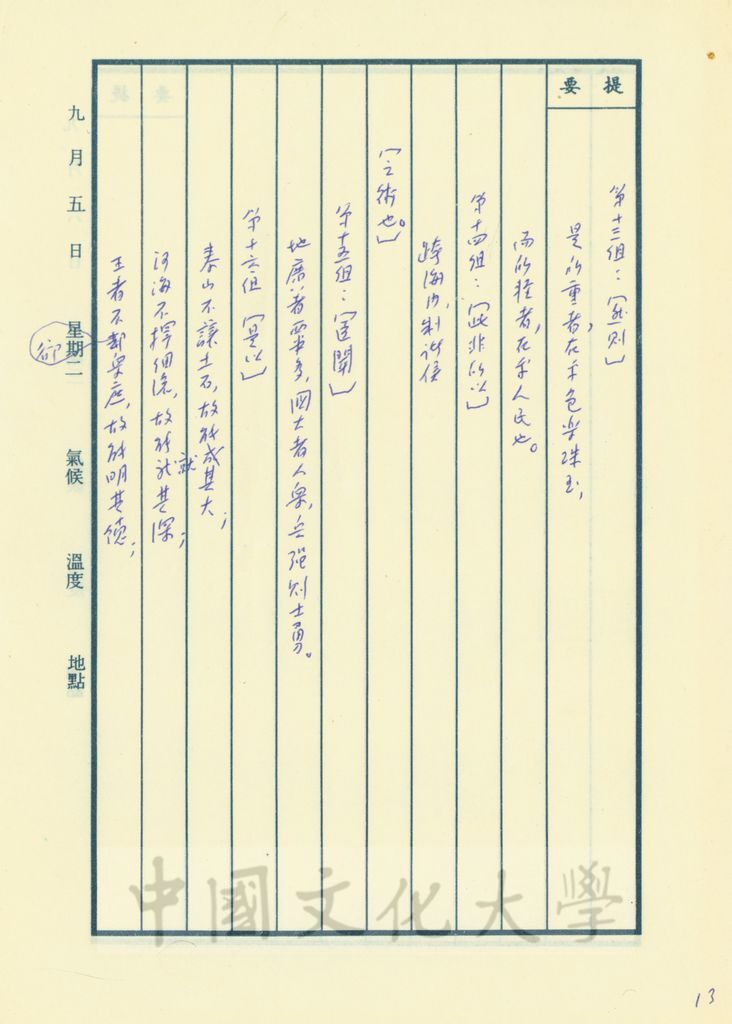 提要
第十三組：〔然則〕
是所重者，在乎色樂珠玉，
而所輕者，在乎人民也。
第十四組：〔此非所以〕
跨海內，制諸侯
〔之術也。〕
第十五組：〔臣聞〕
地廣者粟多，國大者人衆，兵强則士勇。
第十六組〔是以〕
泰山不讓土石，故能成其大；
河海不擇細流，故能就其深；
就
王者不卻衆庶，故能明其德；
卻
九月五日 星期二 氣候 溫度 地點
中國文化大學
13